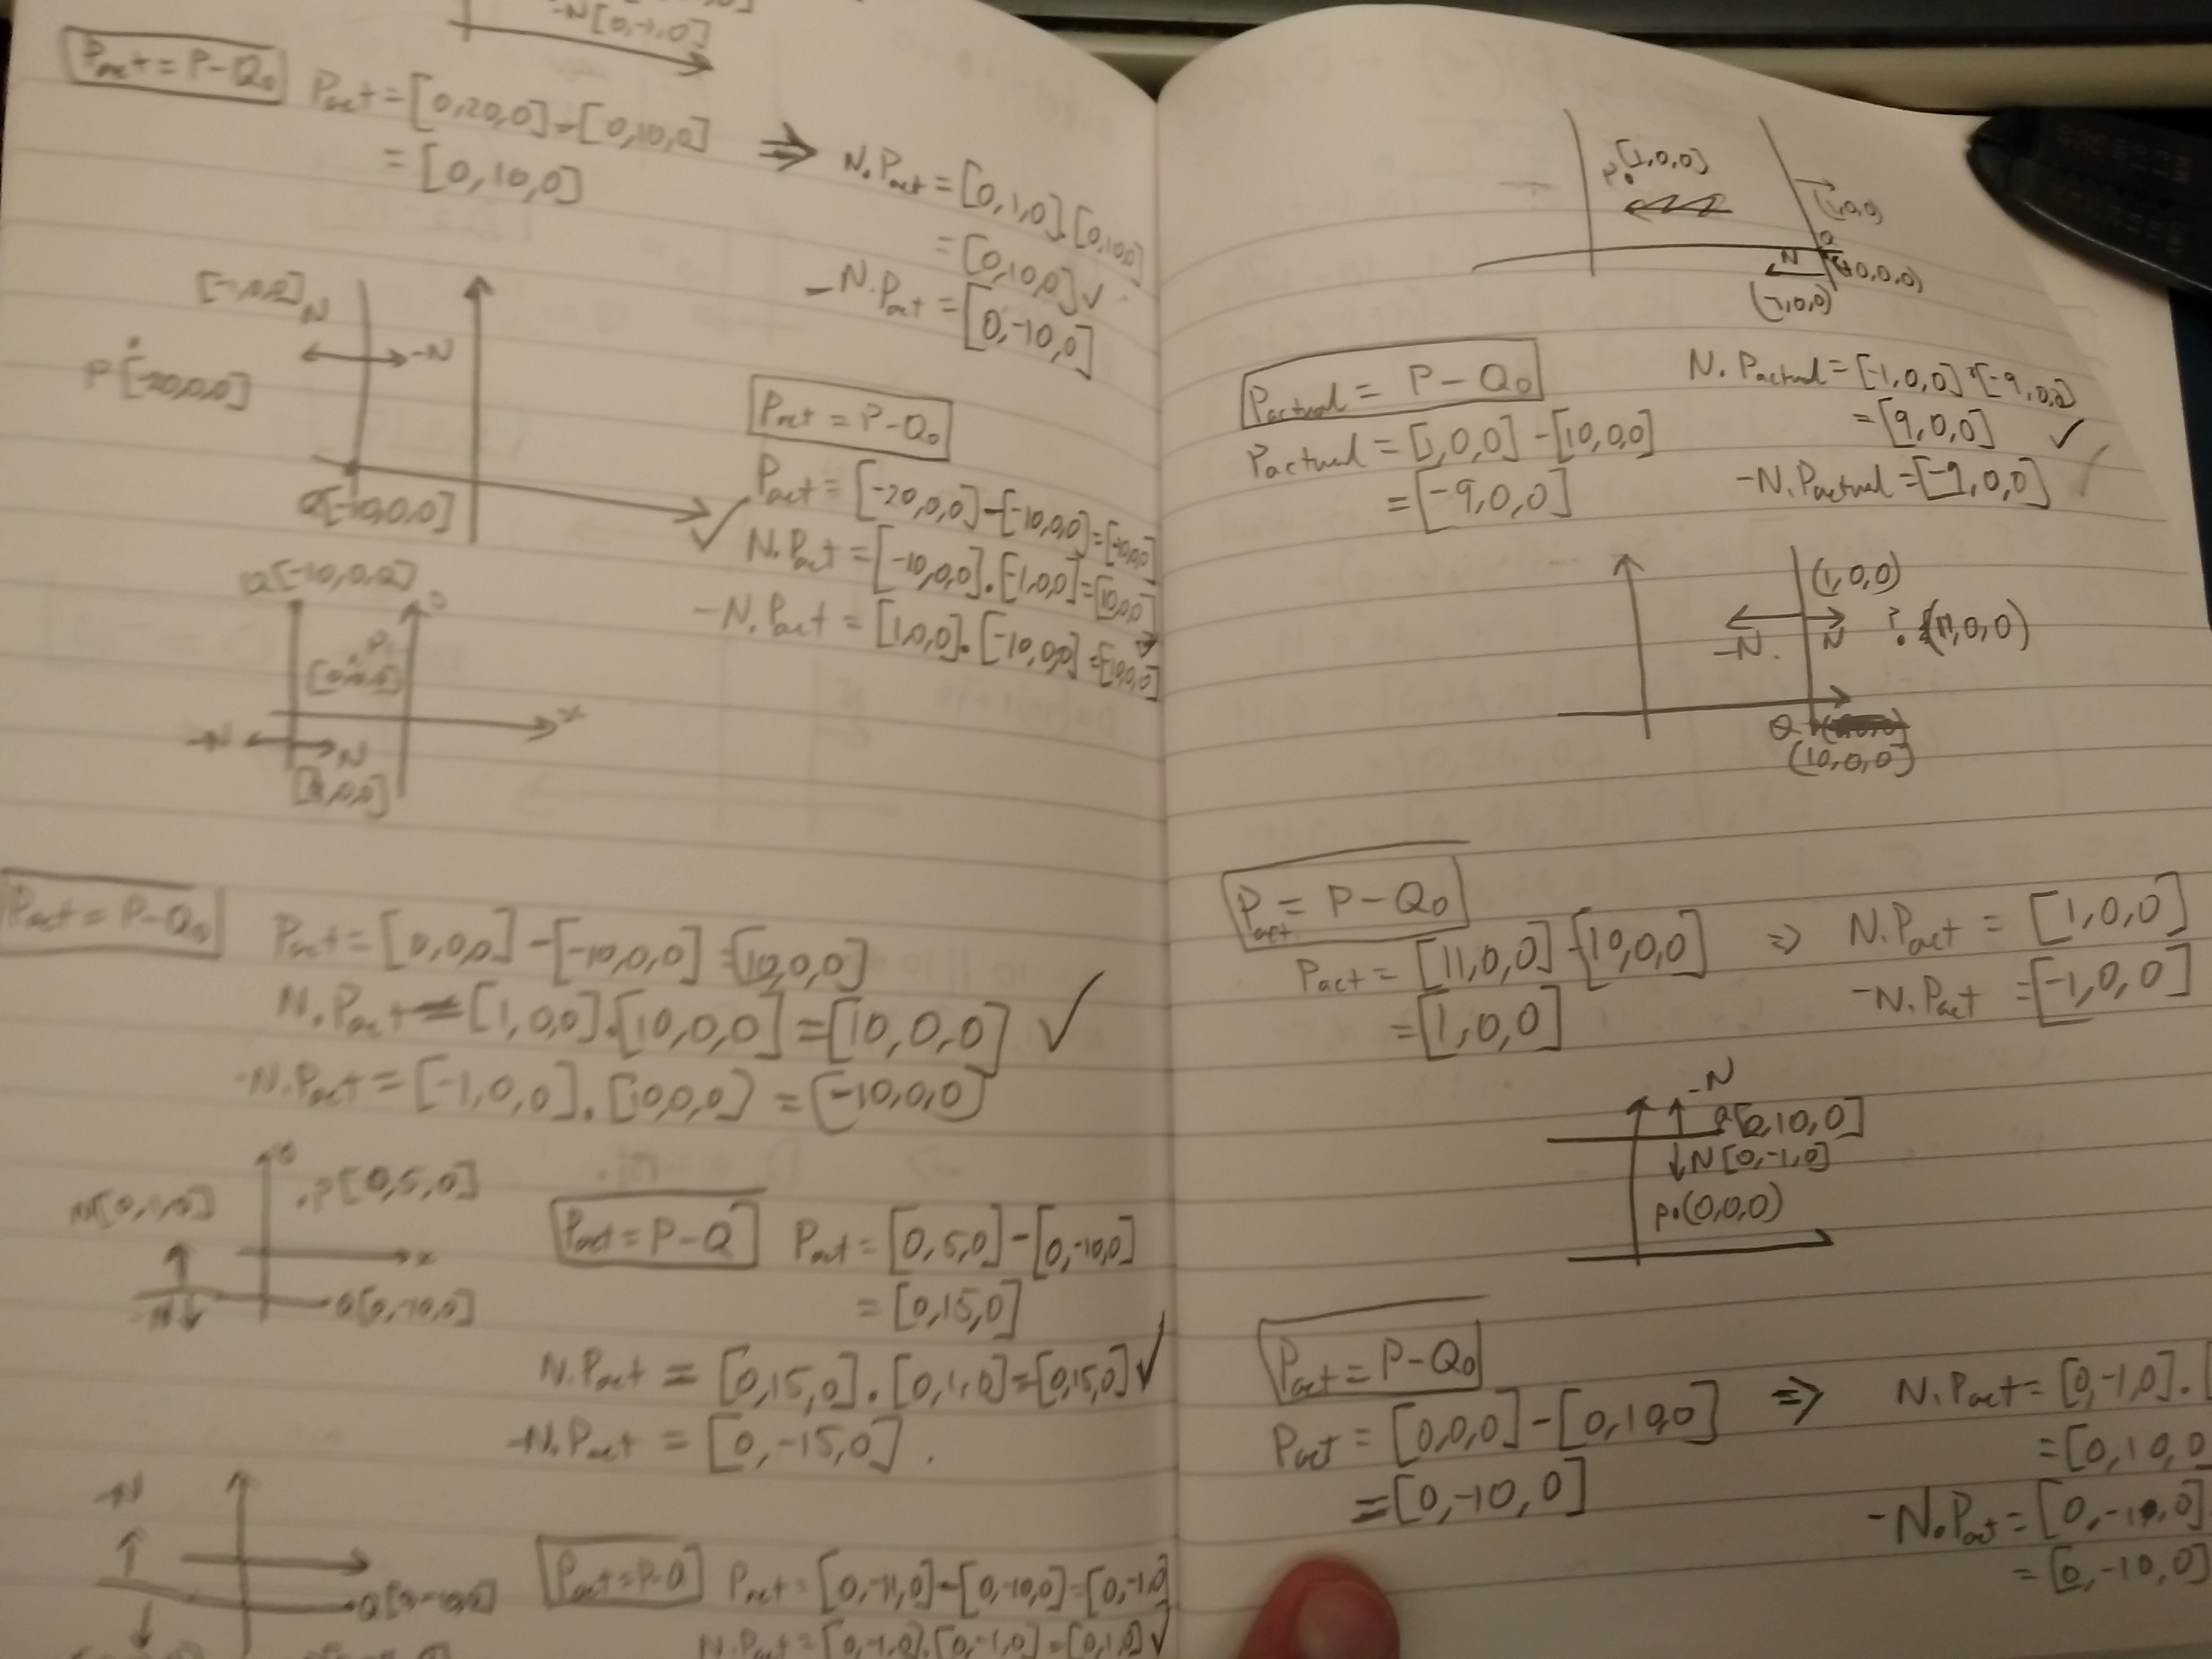 -N[0,-1,0]
Pact = P-Q₀
Pact = [0,20,0]-[0,10,0]
= [0,10,0]
⇒ N.Pact = [0,1,0].[0,10,0]
= [0,10,0] ✓
-N.Pact = [0,-10,0]
[-1,0,0] N
-N
P [-20,0,0]
Q[-10,0,0]
Pact = P-Q₀
Pact = [-20,0,0]-[-10,0,0]=[-10,0,0]
✓ N.Pact = [-10,0,0].[-1,0,0]=[10,0,0]
-N.Pact = [1,0,0].[-10,0,0]=[-10,0,0]
Q[-10,0,0]
P
[0,0,0]
x
-N
N
[1,0,0]
Pact = P-Q₀
Pact = [0,0,0]-[-10,0,0]=[10,0,0]
N.Pact = [1,0,0].[10,0,0]=[10,0,0] ✓
-N.Pact = [-1,0,0].[10,0,0] = [-10,0,0]
.P[0,5,0]
N[0,1,0]
x
-N
Q[0,-10,0]
Pact = P-Q
Pact = [0,5,0]-[0,-10,0]
= [0,15,0]
N.Pact = [0,15,0].[0,1,0]=[0,15,0] ✓
-N.Pact = [0,-15,0].
-N
Q[0,-10,0]
Pact=P-Q
Pact = [0,-11,0]-[0,-10,0]=[0,-1,0]
N.Pact=[0,-1,0].[0,-1,0]=[0,1,0] ✓
P.[1,0,0]
(1,0,0)
Q
N
(10,0,0)
(-1,0,0)
Pactual = P-Q₀
Pactual = [1,0,0]-[10,0,0]
= [-9,0,0]
N.Pactual = [-1,0,0].[-9,0,0]
= [9,0,0] ✓
-N.Pactual = [-9,0,0]
(1,0,0)
-N.
N
P.(11,0,0)
Q
(10,0,0)
Pact = P-Q₀
Pact = [11,0,0]-[10,0,0]
= [1,0,0]
⇒ N.Pact = [1,0,0]
-N.Pact = [-1,0,0]
-N
Q[0,10,0]
N[0,-1,0]
P.(0,0,0)
Pact = P-Q₀
Pact = [0,0,0]-[0,10,0]
= [0,-10,0]
⇒ N.Pact = [0,-1,0].[
= [0,10,0
-N.Pact = [0,-10,0]
= [0,-10,0]